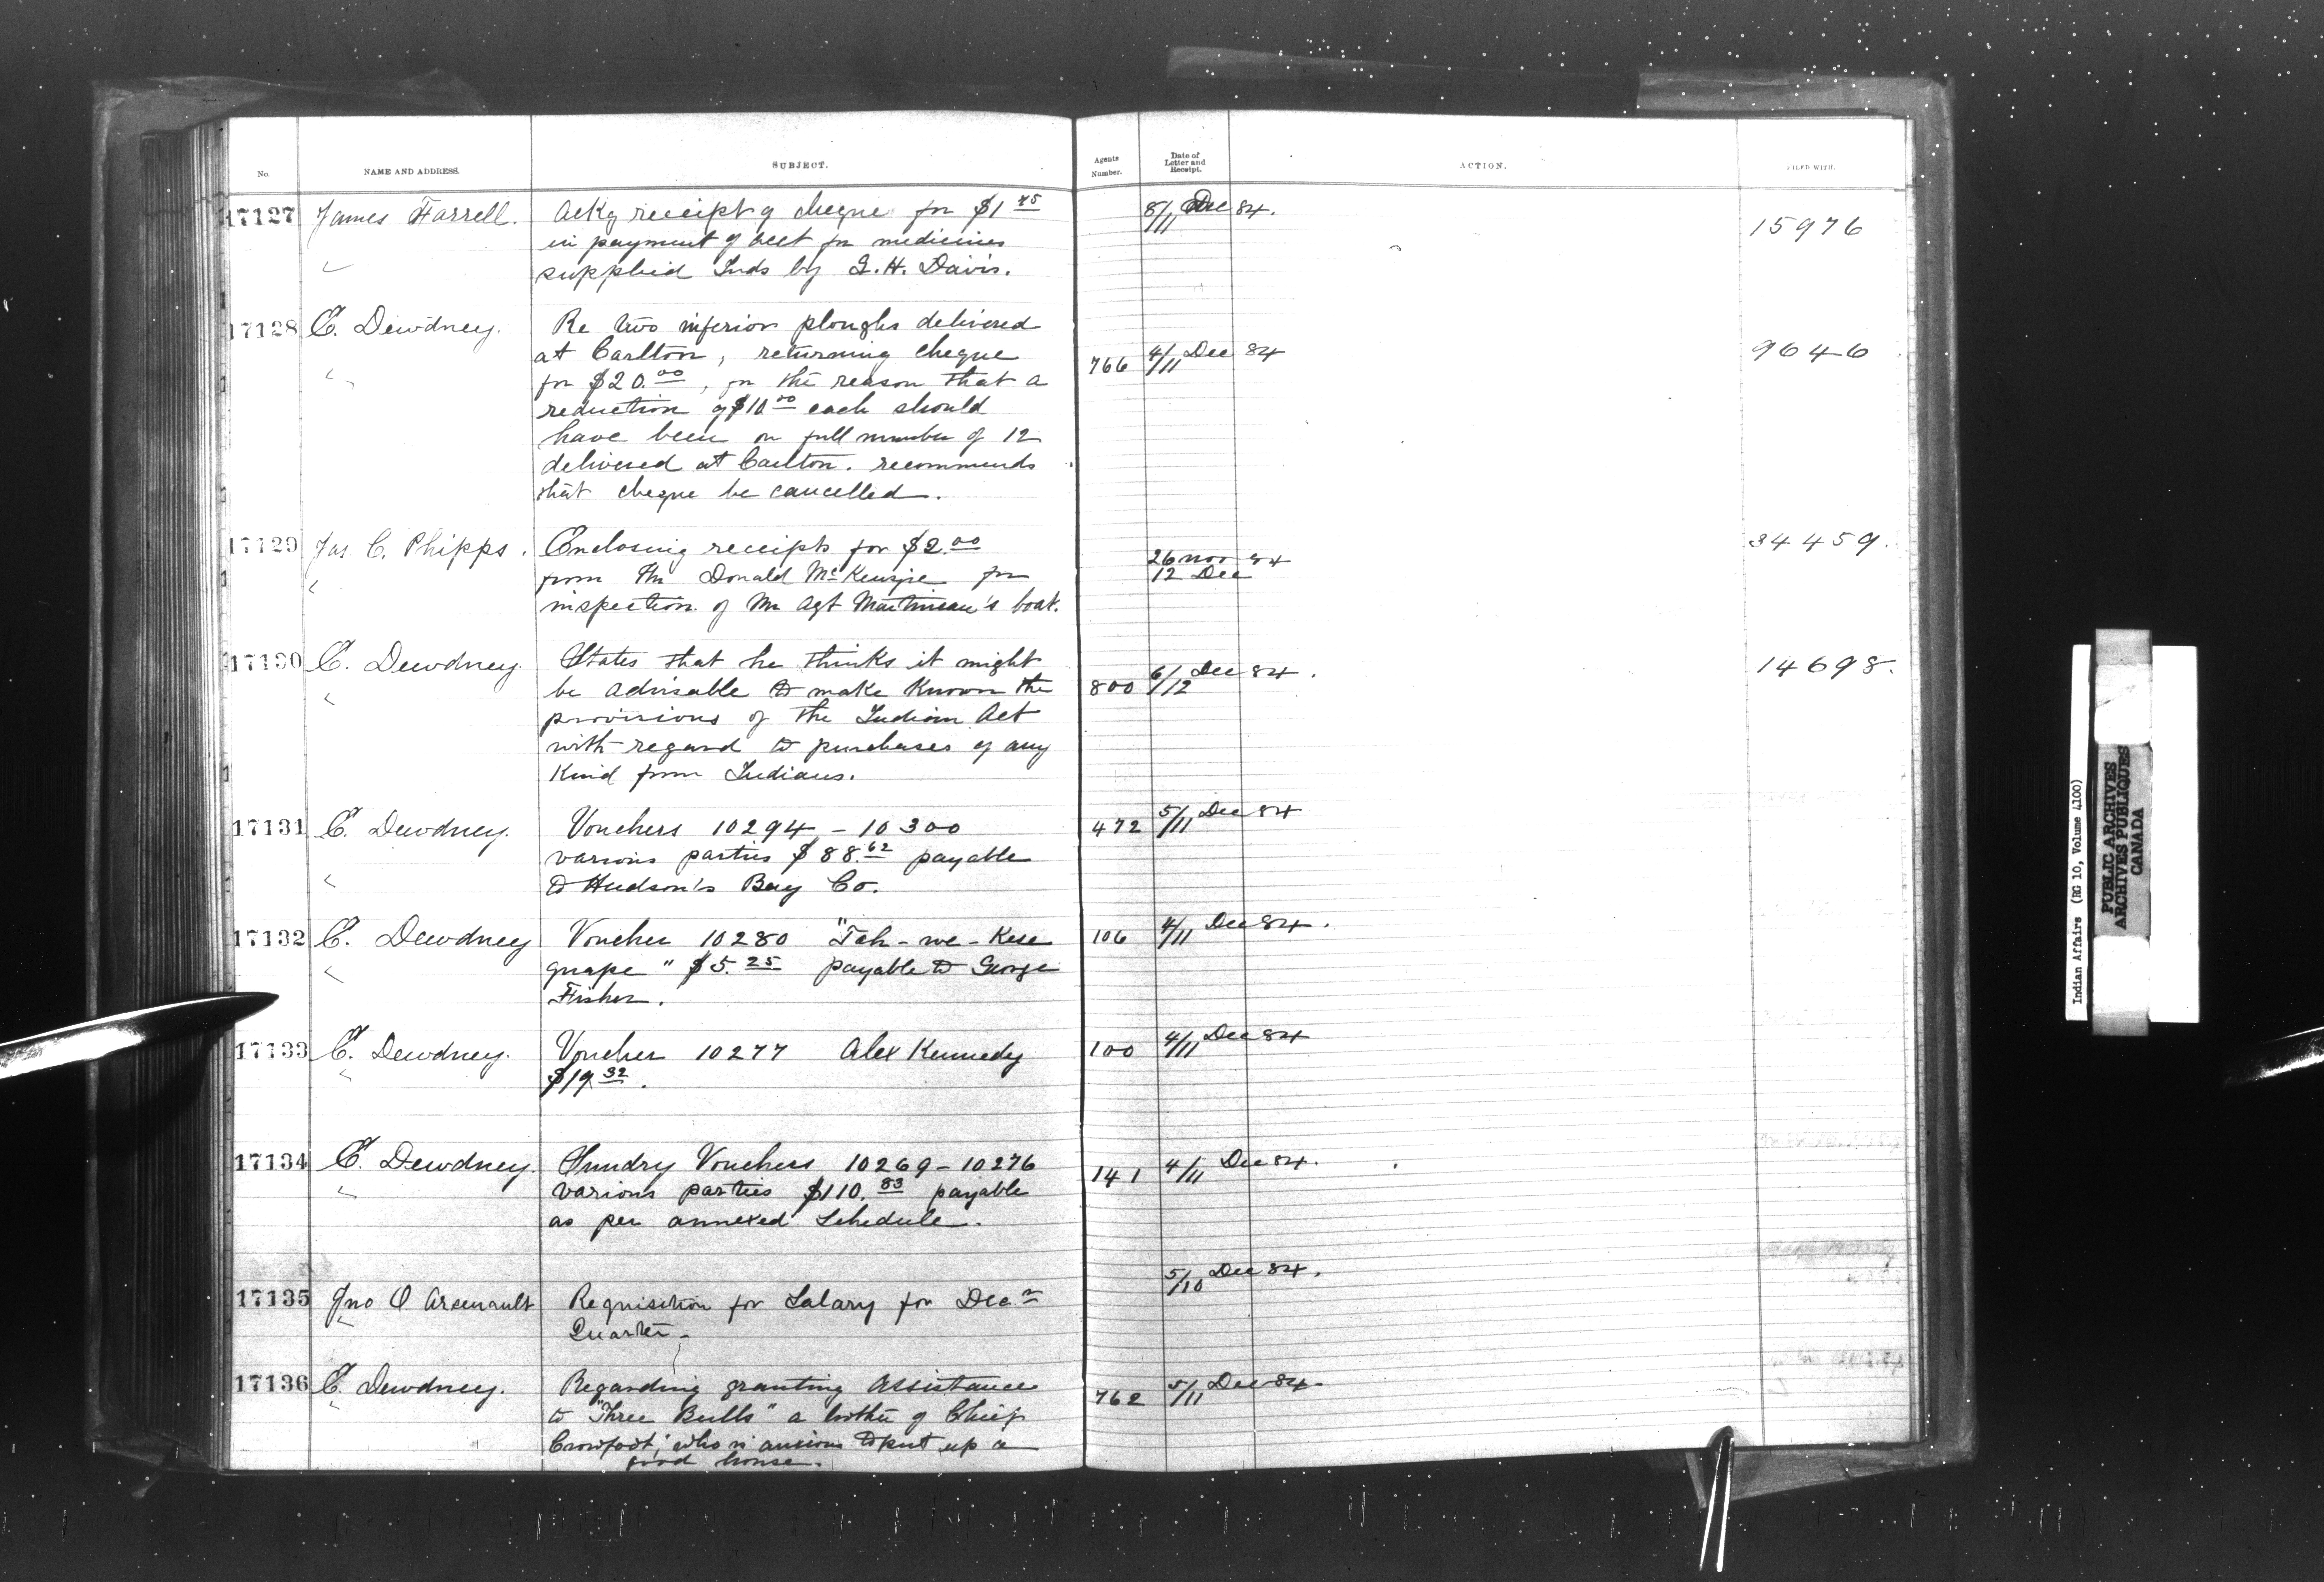 No. NAME AND ADDRESS. SUBJECT. Agents Number. Date of Letter and Receipt. ACTION. FILED WITH.
17127 James Farrell. Ackg receipt of cheque for $1 45 8/11 Dec 84. 15976
in payment of acct for medicines
supplied Inds by G. H. Davis.
17128 E. Dewdney. Re two inferior ploughs delivered
at Carlton, returning cheque 766 4/11 Dec 84 9646
for $20.00, for the reason that a
reduction of $10 00 each should
have been on full number of 12
delivered at Carlton. recommends
that cheque be cancelled.
17129 Jas C. Phipps. Enclosing receipts for $2.00 34459.
from Mr Donald McKenzie for 26 Nov 84
12 Dec
inspection of Mr Agt Martineau's boat.
17130 E. Dewdney. States that he thinks it might 14698.
be advisable to make known the 800 6/12 Dec 84.
provisions of the Indian Act
with regard to purchases of any
Kind from Indians.
17131 E. Dewdney. Vouchers 10294 - 10300 472 5/11 Dec 84
various parties $88.62 payable
to Hudson's Bay Co.
17132 E. Dewdney Voucher 10280 "Tah-we-Kese 106 4/11 Dec 84.
quape" $5.25 payable to George
Fisher.
17133 E. Dewdney. Voucher 10277 Alex Kennedy 100 4/11 Dec 84
$19 32.
17134 E. Dewdney. Sundry Vouchers 10269 - 10276 141 4/11 Dec 84.
various parties $110.83 payable
as per annexed Schedule.
17135 Jno O Arsenault Requisition for Salary for Dec r 5/10 Dec 84.
Quarter.
17136 E. Dewdney. Regarding granting assistance 762 5/11 Dec 84
to "Three Bulls" a brother of Chief
Crowfoot, who is anxious to put up a
good house.
Indian Affairs (RG 10, Volume 4100)
PUBLIC ARCHIVES
ARCHIVES PUBLIQUES
CANADA